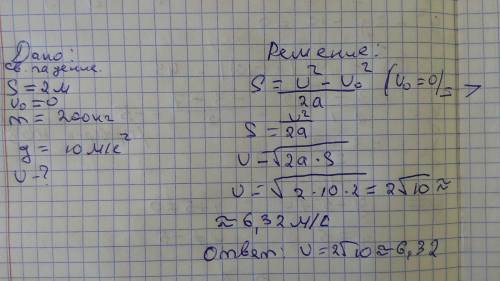 Дано:
св. падение.
S = 2м
υ₀ = 0
m = 200кг
g = 10 м/с²
υ - ?
Решение:
S = υ² - υ₀² / 2a (υ₀ = 0) = >
S = υ² / 2a
υ = √2a · S
υ = √2 · 10 · 2 = 2√10 ≈
≈ 6,32 м/с
Ответ: υ = 2√10 ≈ 6,32